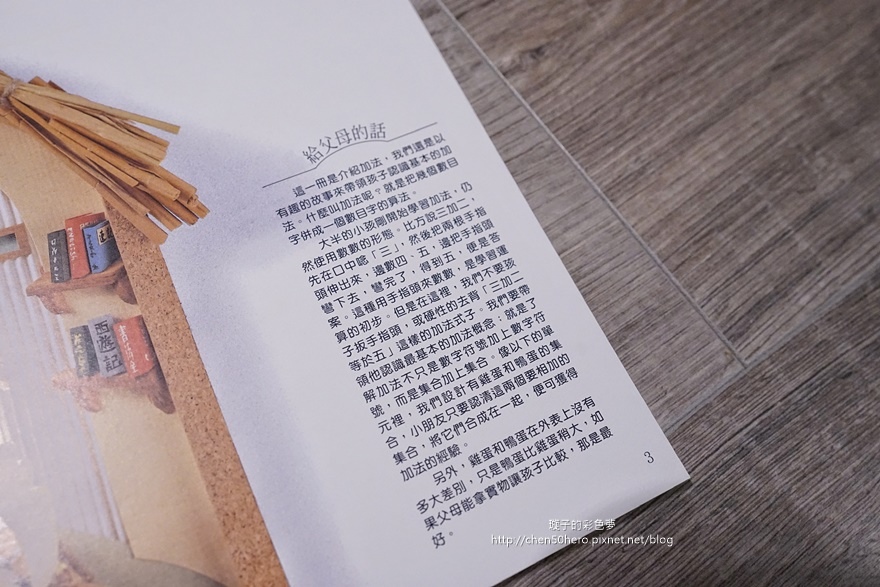 給父母的話
這一冊是介紹加法，我們還是以
有趣的故事來帶領孩子認識基本的加
法。什麼叫加法呢？就是把幾個數目
字併成一個數目字的算法。
大半的小孩剛開始學習加法，仍
然使用數數的形態。比方說三加二，
先在口中唸「三」，然後把兩根手指
頭伸出來，邊數四、五，邊把手指頭
彎下去，彎完了，得到五，便是答
案。這種用手指頭來數數，是學習運
算的初步。但是在這裡，我們不要孩
子扳手指頭，或硬性的去背「三加二
等於五」這樣的加法式子。我們要帶
領他認識最基本的加法概念；就是了
解加法不只是數字符號加上數字符
號，而是集合加上集合。像以下的單
元裡，我們設計有雞蛋和鴨蛋的集
合，小朋友只要認清這兩個要相加的
集合，將它們合成在一起，便可獲得
加法的經驗。
另外，雞蛋和鴨蛋在外表上沒有
多大差別，只是鴨蛋比雞蛋稍大，如
果父母能拿實物讓孩子比較，那是最
好。
3
西遊記
璇子的彩色夢
http://chen50hero.pixnet.net/blog